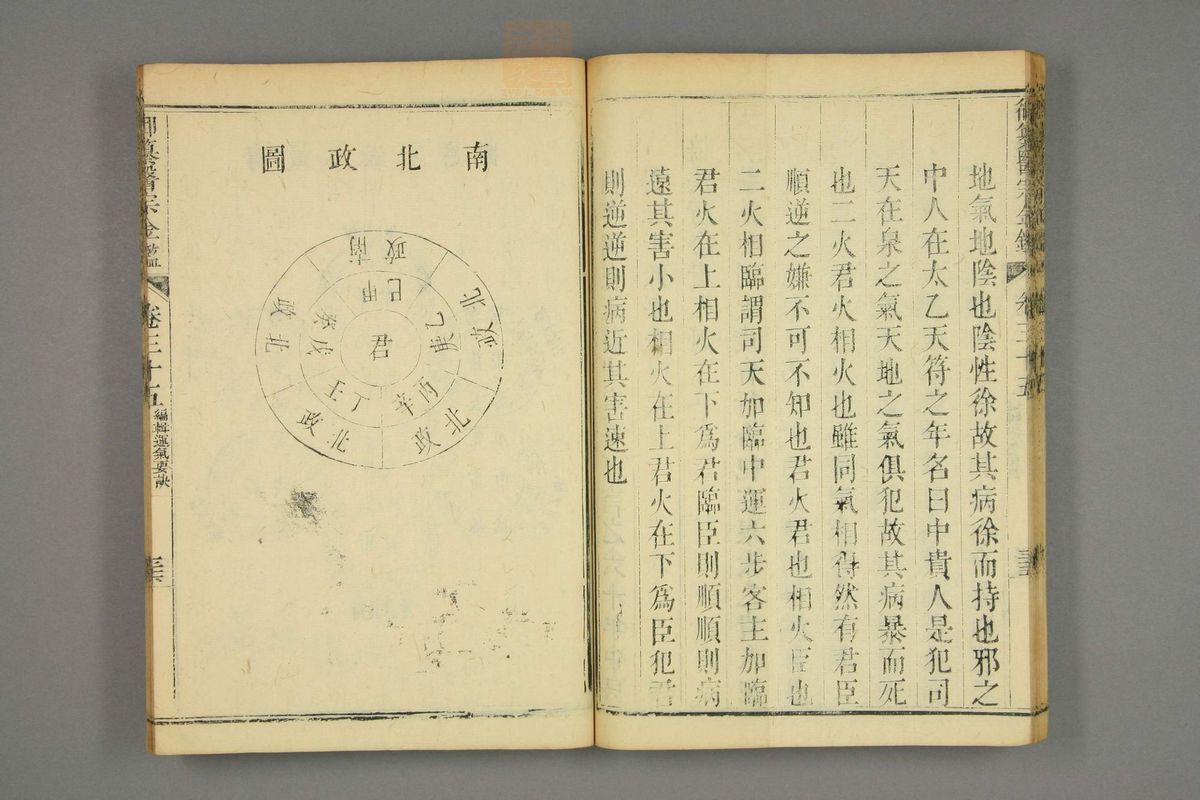 御纂醫宗金鑑
卷三十五
地氣地陰也陰性徐故其病徐而持也邪之
中人在太乙天符之年名曰中貴人是犯司
天在泉之氣天地之氣俱犯故其病暴而死
也二火君火相火也雖同氣相得然有君臣
順逆之嫌不可不知也君火君也相火臣也
二火相臨謂司天加臨中運六步客主加臨
君火在上相火在下為君臨臣則順順則病
遠其害小也相火在上君火在下為臣犯君
則逆逆則病近其害速也
南北政圖
南政
甲己
北政
乙庚
北政
丙辛
北政
丁壬
北政
戊癸
君
御纂醫宗金鑑
卷三十五
編輯運氣要訣